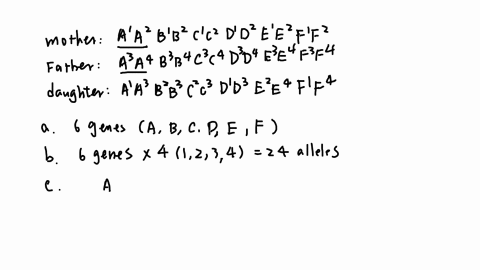 mother: A¹A² B¹B² C¹C² D¹D² E¹E² F¹F²
Father: A³A⁴ B³B⁴ C³C⁴ D³D⁴ E³E⁴ F³F⁴
daughter: A¹A³ B²B³ C²C³ D¹D³ E²E⁴ F¹F⁴
a. 6 genes (A, B, C, D, E, F)
b. 6 genes × 4 (1,2,3,4) = 24 alleles
c. A